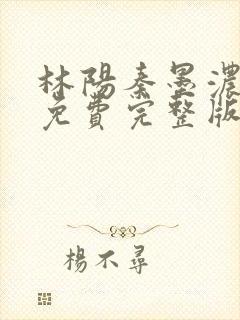 林陽秦墨濃
免費完整版
楊不尋